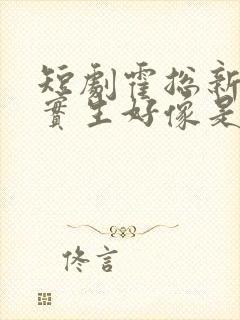 短劇霍總新
實生好像是
佟言